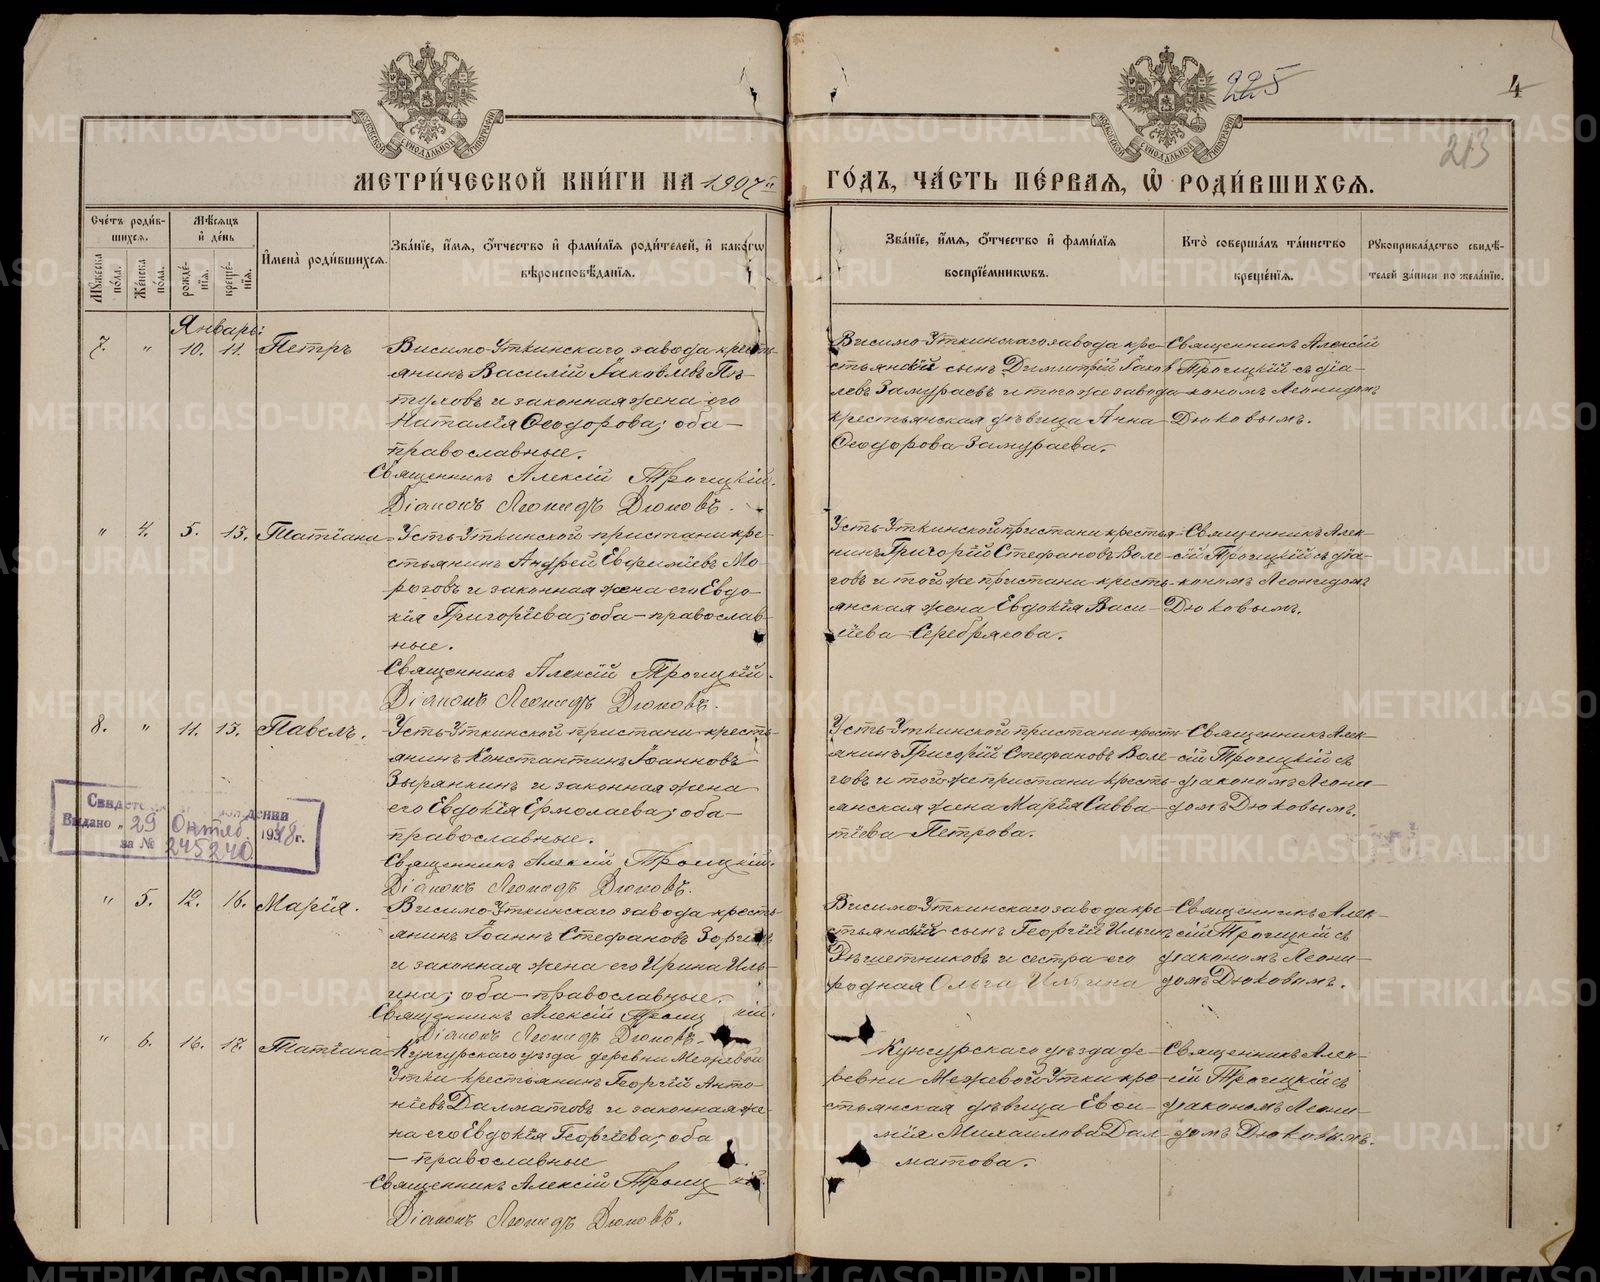 225
4
213
МЕТРИ́ЧЕСКОЙ КНИ́ГИ НА 1907й ГО́ДЪ, ЧА́СТЬ ПЕ́РВАЯ, Ѡ҆ РОДИ́ВШИХСЯ.
Сче́тъ роди́в-
шихся.
Мѣ́сяцъ
и҆ де́нь
И҆мена̀ роди́вшихся.
Зва́нїе, и҆́мя, о҆́тчество и҆ фами́лїя роди́телей, и҆ како́гѡ
вѣроисповѣ́данїя.
Мꙋ́жеска
по́ла.
Же́нска
по́ла.
рожде́-
нїя.
креще́-
нїя.
Зва́нїе, и҆́мя, о҆́тчество и҆ фами́лїя
воспрїе́мникѡвъ.
Кто̀ соверша́лъ та́инство
креще́нїя.
Рꙋкоприкла́дство свидѣ́-
телей за́писи по жела́нїю.
Январь:
7. " 10. 11. Петръ
Висимо-Уткинскаго завода кресть-
янинъ Василій Іаковлевъ Пѣ-
туховъ и законная жена его
Наталія Ѳеодорова; оба –
православные.
Священникъ Алексій Троицкій.
Діаконъ Леонидъ Дюковъ.
Висимо-Уткинскаго завода кре-
стьянскій сынъ Димитрій Іаков
левъ Замураевъ и того же завода
крестьянская дѣвица Анна
Ѳеодорова Замураева.
Священникъ Алексій
Троицкій съ діа-
кономъ Леонидомъ
Дюковымъ.
" 4. 5. 13. Татіана
Усть-Уткинской пристани кре-
стьянинъ Андрей Евфиміевъ Мо
розовъ и законная жена его Евдо-
кія Григоріева; оба – православ-
ные.
Священникъ Алексій Троицкій.
Діаконъ Леонидъ Дюковъ.
Усть-Уткинской пристани крестья-
нинъ Григорій Стефановъ Воле-
говъ и той же пристани кресть-
янская жена Евдокія Васи-
ліева Серебрякова.
Священникъ Алек-
сій Троицкій съ діа-
кономъ Леонидомъ
Дюковымъ.
8. " 11. 13. Павелъ.
Усть-Уткинской пристани кресть-
янинъ Константинъ Іоанновъ
Зырянкинъ и законная жена
его Евдокія Ермолаева; оба –
православные.
Священникъ Алексій Троицкій.
Діаконъ Леонидъ Дюковъ.
Усть-Уткинской пристани кресть-
янинъ Григорій Стефановъ Воле-
говъ и того же пристани кресть-
янская жена Марія Савва-
тіева Петрова.
Священникъ Алек-
сій Троицкій съ
діакономъ Леони-
домъ Дюковымъ.
Выдано „29 Октяб. 1938г.
за № 245240
" 5. 12. 16. Марія.
Висимо-Уткинскаго завода кресть-
янинъ Іоаннъ Стефановъ
и законная жена его Ирина Иль-
ина; оба – православные.
Священникъ Алексій Троиц кій.
Діаконъ Леонидъ Дюковъ.
Висимо-Уткинскаго завода кре-
стьянскій сынъ Георгій Ильинъ
Рѣшетниковъ и сестра его
родная Ольга Ильина
Священникъ Алек-
сій Троицкій съ
діакономъ Леони-
домъ Дюковымъ.
" 6. 16. 17. Татіана
Кунгурскаго уѣзда деревни Межевой
Утки крестьянинъ Георгій Анто-
ніевъ Далматовъ и законная же-
на его Евдокія Георгіева; оба
– православные
Священникъ Алексій Троиц кій.
Діаконъ Леонидъ Дюковъ.
Кунгурскаго уѣзда де-
ревни Межевой Утки кре-
стьянская дѣвица Евѳи-
мія Михаилова Дал-
матова.
Священникъ Алек-
сій Троицкій съ
діакономъ Леони-
домъ Дюковымъ.
METRIKI.GASO-URAL.RU